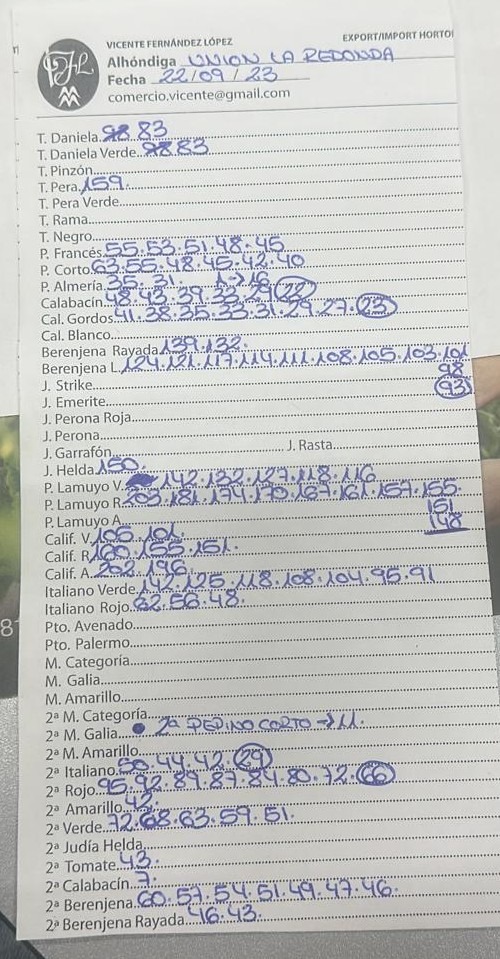 VICENTE FERNÁNDEZ LÓPEZ EXPORT/IMPORT HORTO
Alhóndiga UNION LA REDONDA
Fecha 22/09/23
comercio.vicente@gmail.com
T. Daniela 98 83
T. Daniela Verde 98 83
T. Pinzón
T. Pera 159
T. Pera Verde
T. Rama
T. Negro
P. Francés 55.53.51.48.45
P. Corto 63.55.48.45.42.40
P. Almería 35.31. 1->16
Calabacín 48.43.39.33.29 (22)
Cal. Gordos 41.38.35.33.31.29.27.(23)
Cal. Blanco
Berenjena Rayada 139.132.
Berenjena L. 124.121.117.114.111.108.105.103.101
98
J. Strike (93)
J. Emerite
J. Perona Roja
J. Perona
J. Garrafón J. Rasta
J. Helda 150.
P. Lamuyo V. 142.132.127.118.116
P. Lamuyo R. 203.181.174.170.167.161.157.155.
151
P. Lamuyo A. 148
Calif. V. 105.101.
Calif. R. 160.155.151.
Calif. A. 202.196.
Italiano Verde 142.125.118.108.104.95.91
Italiano Rojo 62.56.48.
Pto. Avenado
Pto. Palermo
M. Categoría
M. Galia
M. Amarillo
2ª M. Categoría
2ª M. Galia 2ª PEPINO CORTO -> 11.
2ª M. Amarillo
2ª Italiano 50.44.42.(29)
2ª Rojo 95.92.89.87.84.80.72.(66)
2ª Amarillo 42.
2ª Verde 72.68.63.59.51.
2ª Judía Helda
2ª Tomate 43.
2ª Calabacín 7.
2ª Berenjena 60.57.54.51.49.47.46.
2ª Berenjena Rayada 46.43.